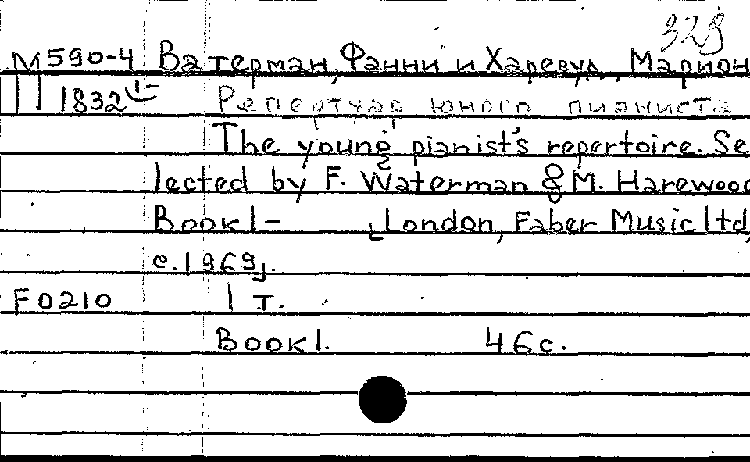 323
М590-4 Ватерман, Фанни и Харевуд, Марион
П 1832 Репертуар юного пианиста
The young pianist's repertoire. Se
lected by F. Waterman & M. Harewood
Book 1- [London, Faber Music ltd,
c. 1969].
F0210 1 т.
Book 1. 46с.